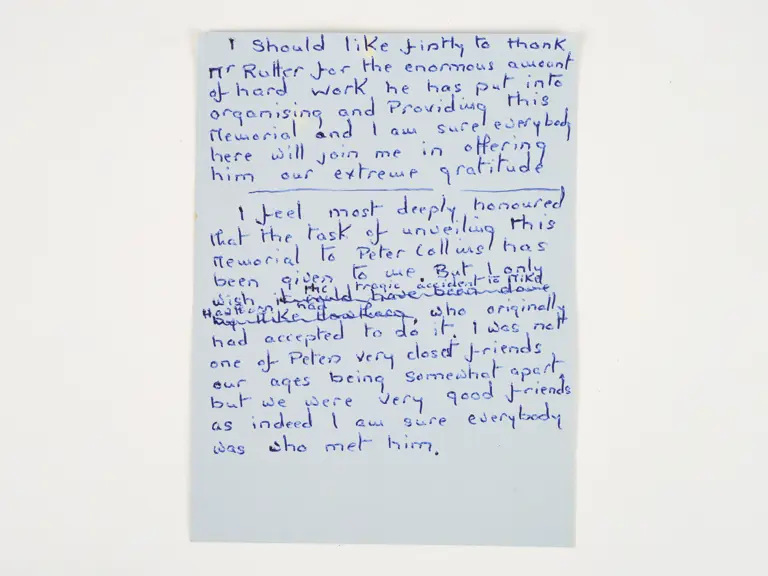 I should like firstly to thank
Mr Rutter for the enormous amount
of hard work he has put into
organising and Providing this
Memorial and I am sure everybody
here will join me in offering
him our extreme gratitude
I feel most deeply honoured
that the task of unveiling this
Memorial to Peter Collins has
been given to me. But I only
the tragic accident to Mike
wish it could have been done
Hawthorn had
by Mike Hawthorn, who originally
had accepted to do it. I was not
one of Peters very closest friends
our ages being somewhat apart,
but we were very good friends
as indeed I am sure everybody
was who met him.